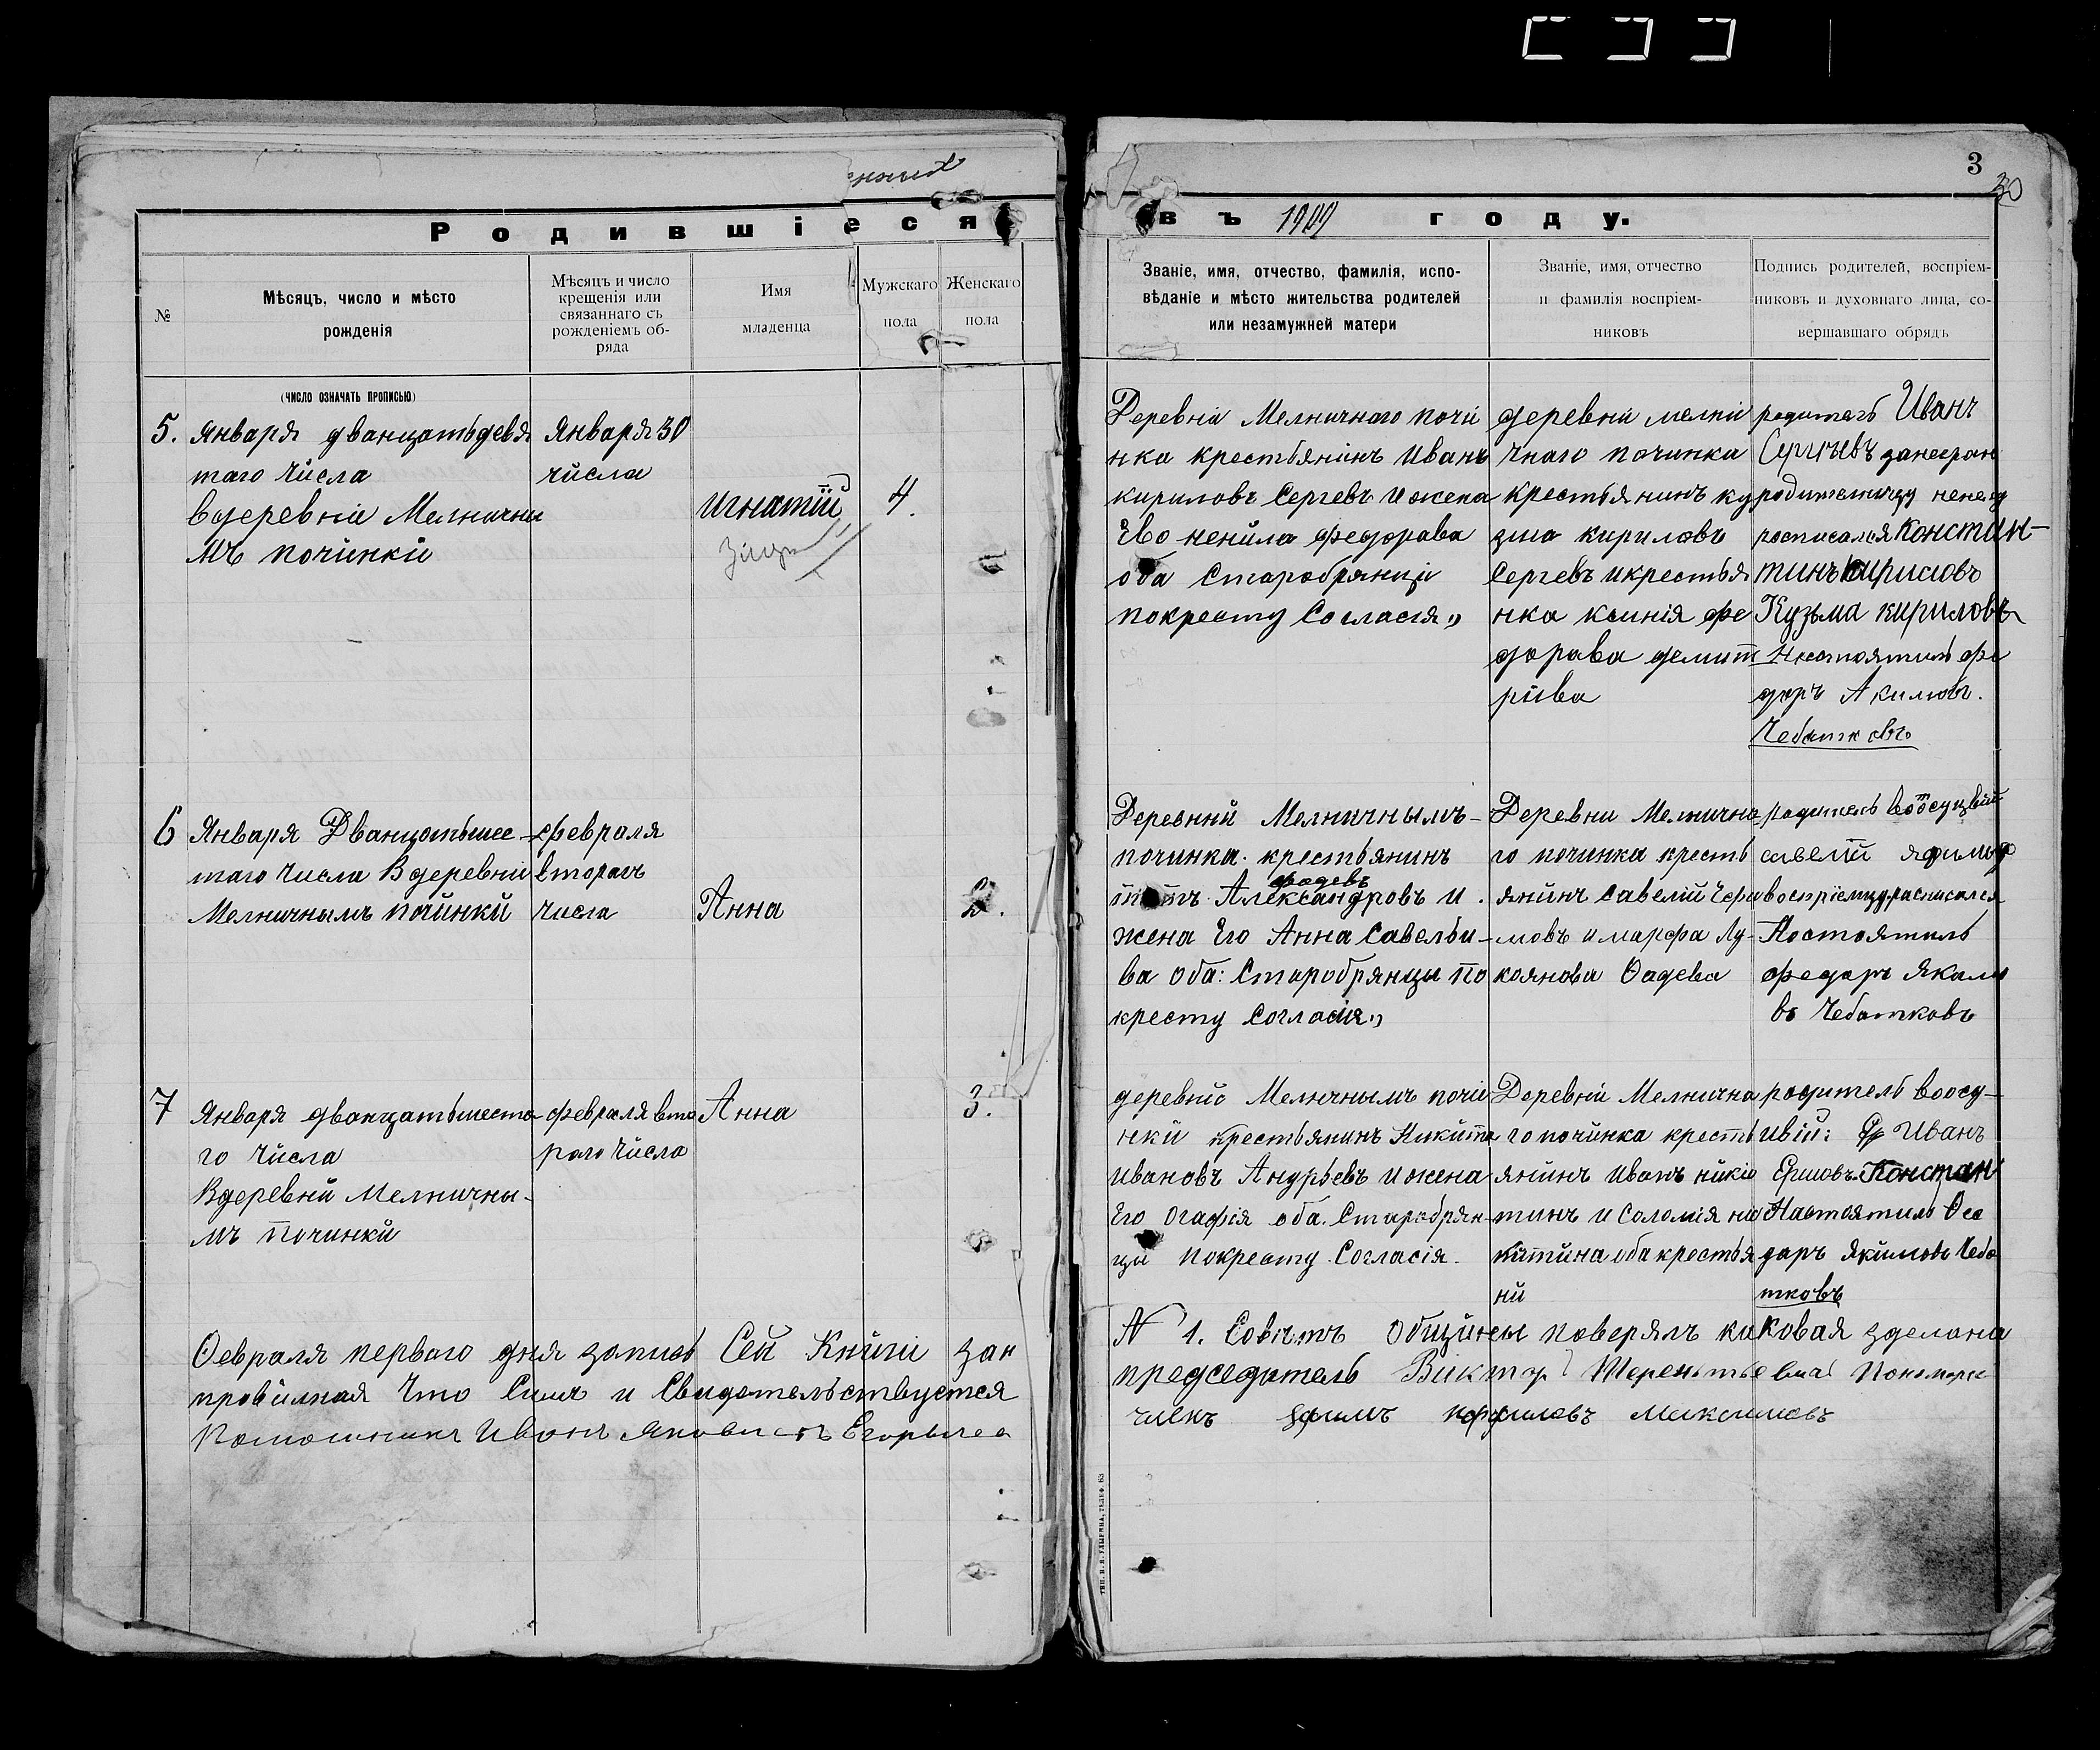 3
30
Родившіеся
въ 1909 году.
№
Мѣсяцъ, число и мѣсто
рожденія
Мѣсяцъ и число
крещенія или
связаннаго съ
рожденіемъ об-
ряда
Имя
младенца
Мужскаго
пола
Женскаго
пола
Званіе, имя, отчество, фамилія, испо-
вѣданіе и мѣсто жительства родителей
или незамужней матери
Званіе, имя, отчество
и фамилія воспріем-
никовъ
Подпись родителей, воспріем-
никовъ и духовнаго лица, со-
вершавшаго обрядъ
(число означать прописью)
5.
Января дванцатьдевя
таго числа
вдеревніе Мелничны
мъ починкй
Января 30
числа
Игнатій
4.
Деревніи Мелничнаго почи
нка крестьянинъ Иванъ
кириловъ Сергевъ и жена
Ево ненйла федорава
оба Старобрянці
покресту Согласія"
деревній мелни
чнаго починка
крестьянинъ ку
зма кириловъ
Сергевъ икрестья
нка ксинія фе
дорава демит
ріева
родитель Иванъ
Сергѣевъ
росписался Констан-
тинъ Кириловъ
Кузьма кириловъ
Настоятиль фе
доръ Акимовъ.
Чебатковъ
6
Января Дванцатьшес-
таго числа Вдеревніи
Мелничнымъ почйнкй
февраля
втораго
числа
Анна
2.
Деревнйй Мелничнымъ-
починка. крестьянинъ
фадевъ
титъ Александровъ и.
жена Его Анна Савельи-
ва оба: Старобрянцы по
кресту Согласія"
Деревни Мелнична
го починка кресть
янинъ Савелій Ефи
мовъ и марфа Лу-
коянова Фадева
родитель
савелий
воспріемцу росписался
Настоятиль
федоръ Якимо
въ Чебатковъ
7
Января дванцатьшесто-
го числа
Вдеревнй Мелничны-
мъ починкй
февраля вто
раго числа
Анна
3.
деревнйс Мелничнымъ почи
нкй крестьянинъ Никита
Ивановъ Андрьевъ и жена
Его Огафія оба. Старобрян-
цы покресту Согласія.
Деревній Мелнична
го починка кресть
янинъ Иванъ
и Соломія ни
китйна оба крестья
нй
родитель воосу-
ивій: Иванъ
Ершовъ. Констан
Настоятиль Фео
доръ Якимовъ Чеба
тковъ
Февраля перваго дня запись Сей Книги
провилная Что Симъ и Свидетельствуется
Помошникъ Иванъ
N 1. Совѣтъ Общины поверялъ каковая зделана
председатель Виктор Терентьевичъ
членъ Максимовъ